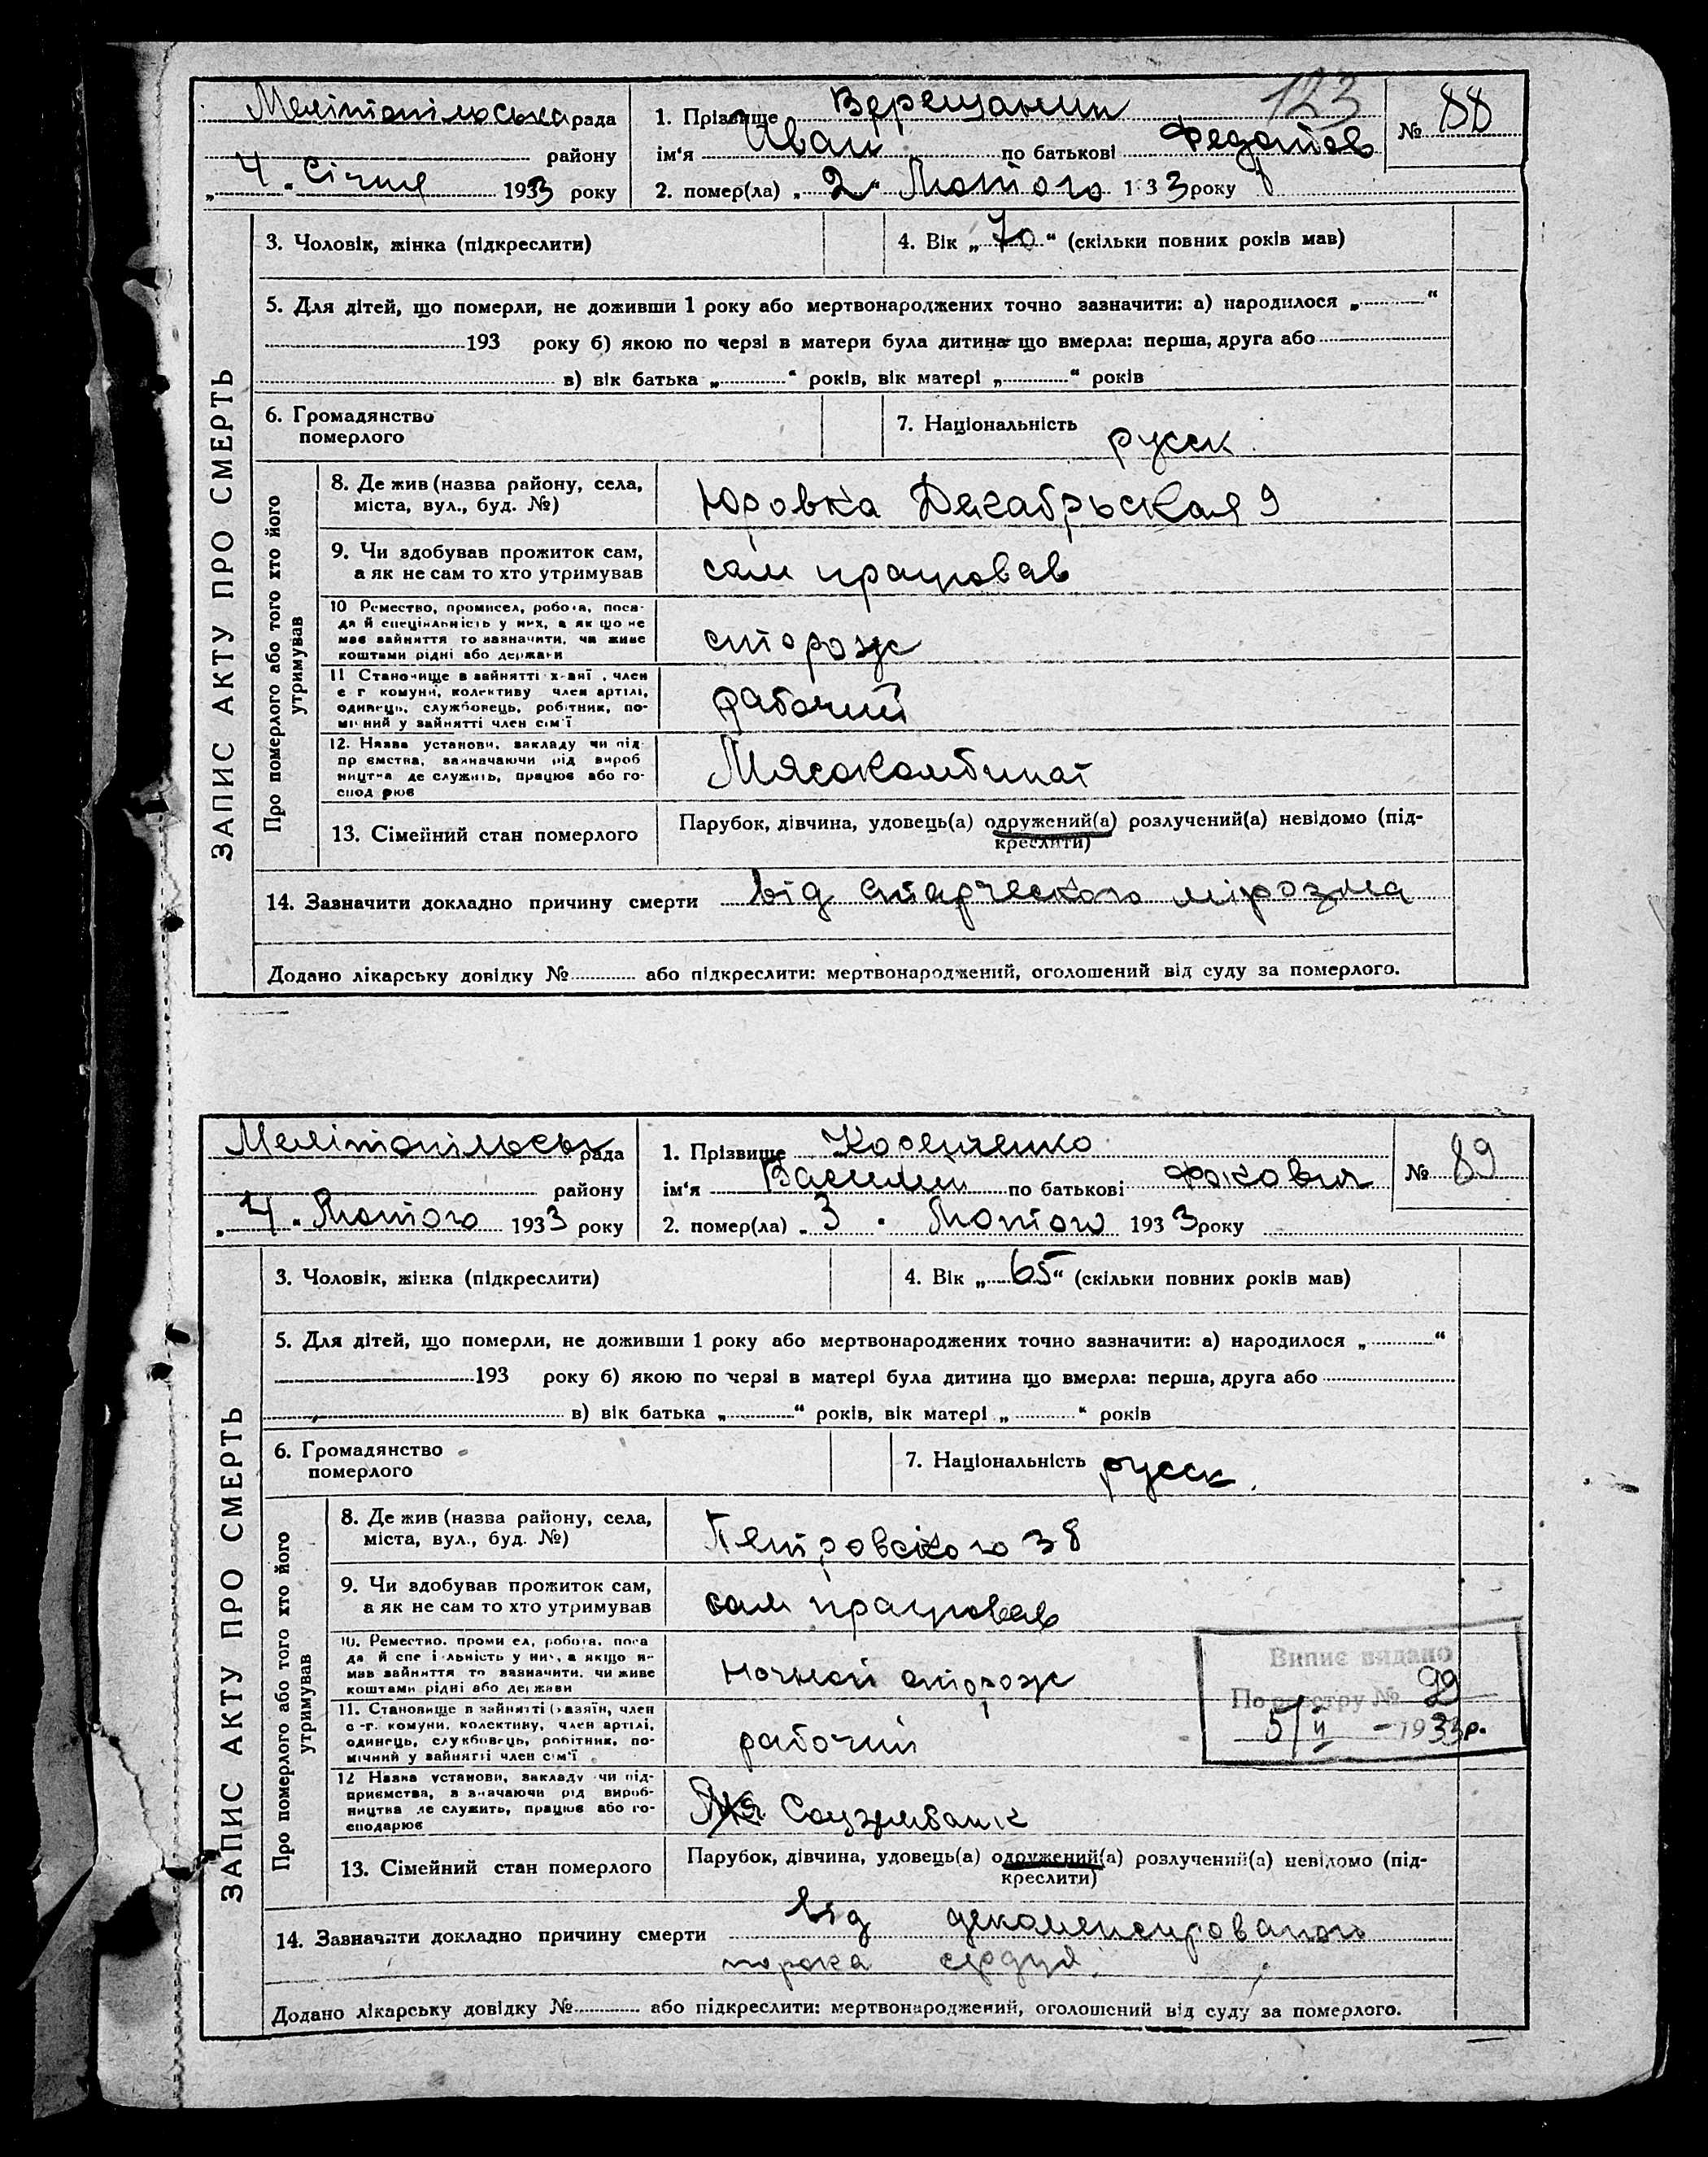 123
Мелітопільська рада
району
„ 4 " Січня 1933 року
1. Прізвище Верещанин
ім'я Иван по батькові
2. помер(ла) „ 2 " Лютого 1 3 3 року
№ 88
ЗАПИС АКТУ ПРО СМЕРТЬ
3. Чоловік, жінка (підкреслити)
4. Вік „ 70 " (скільки повних років мав)
5. Для дітей, що померли, не доживши 1 року або мертвонароджених точно зазначити: а) народилося „ "
193 року б) якою по черзі в матери була дитина що вмерла: перша, друга або
в) вік батька „ " років, вік матері „ " років
6. Громадянство
померлого
7. Національність русск.
Про померлого або того хто його
утримував
8. Де жив (назва району, села,
міста, вул., буд. №)
Юровка Декабрьская 9
9. Чи здобував прожиток сам,
а як не сам то хто утримував
сам працював
10 Ремество, промисел, робота, поса-
да й спеціяльність у них, а як що не
має зайняття то зазначити, чи живе
коштами рідні або держави
сторож
11 Становище в зайнятті х-яї , член
с г комуни, колективу член артілі,
одинець, службовець, робітник, по-
мічний у зайнятті член сім'ї
рабочий
12. Назва установи, закладу чи під-
пр ємства, зазначаючи рід вироб
ництва де служить, працює або го-
спод рює
Мясокомбинат
13. Сімейний стан померлого
Парубок, дівчина, удовець(а) одружений(а) розлучений(а) невідомо (під-
креслити)
14. Зазначити докладно причину смерти від старческого мірозма
Додано лікарську довідку № або підкреслити: мертвонароджений, оголошений від суду за померлого.
Мелітопільськ рада
району
„ 4 " Лютого 1933 року
1. Прізвище
ім'я Василий по батькові Фокович
2. помер(ла) „ 3 " Лютого 1933 року
№ 89
ЗАПИС АКТУ ПРО СМЕРТЬ
3. Чоловік, жінка (підкреслити)
4. Вік „ 65 " (скільки повних років мав)
5. Для дітей, що померли, не доживши 1 року або мертвонароджених точно зазначити: а) народилося „ "
193 року б) якою по черзі в матері була дитина що вмерла: перша, друга або
в) вік батька „ " років, вік матері „ " років
6. Громадянство
померлого
7. Національність русск.
Про померлого або того хто його
утримував
8. Де жив (назва району, села,
міста, вул., буд. №)
Петровського 38
9. Чи здобував прожиток сам,
а як не сам то хто утримував
сам працював
10. Ремество, проми ел, робота, поса
да й спе і льність у них, а якщо н-
має зайняття то зазначити, чи живе
коштами рідні або держави
ночной сторож
11. Становище в зайнятті (хазяїн, член
с.-г. комуни, колективу, член артілі,
одинець, службовець, робітник, по-
мічний у зайнятті член сім'ї
рабочий
12 Назва установи, закладу чи під-
приємства, зазначаючи рід вироб-
ництва де служить, працює або го-
сподарює
13. Сімейний стан померлого
Парубок, дівчина, удовець(а) одружений(а) розлучений(а) невідомо (під-
креслити)
14. Зазначити докладно причину смерти від декоменсированого
порока сердця
Додано лікарську довідку № або підкреслити: мертвонароджений, оголошений від суду за померлого.
Випис видано
По реєстру № 99
5/II - 1933 р.